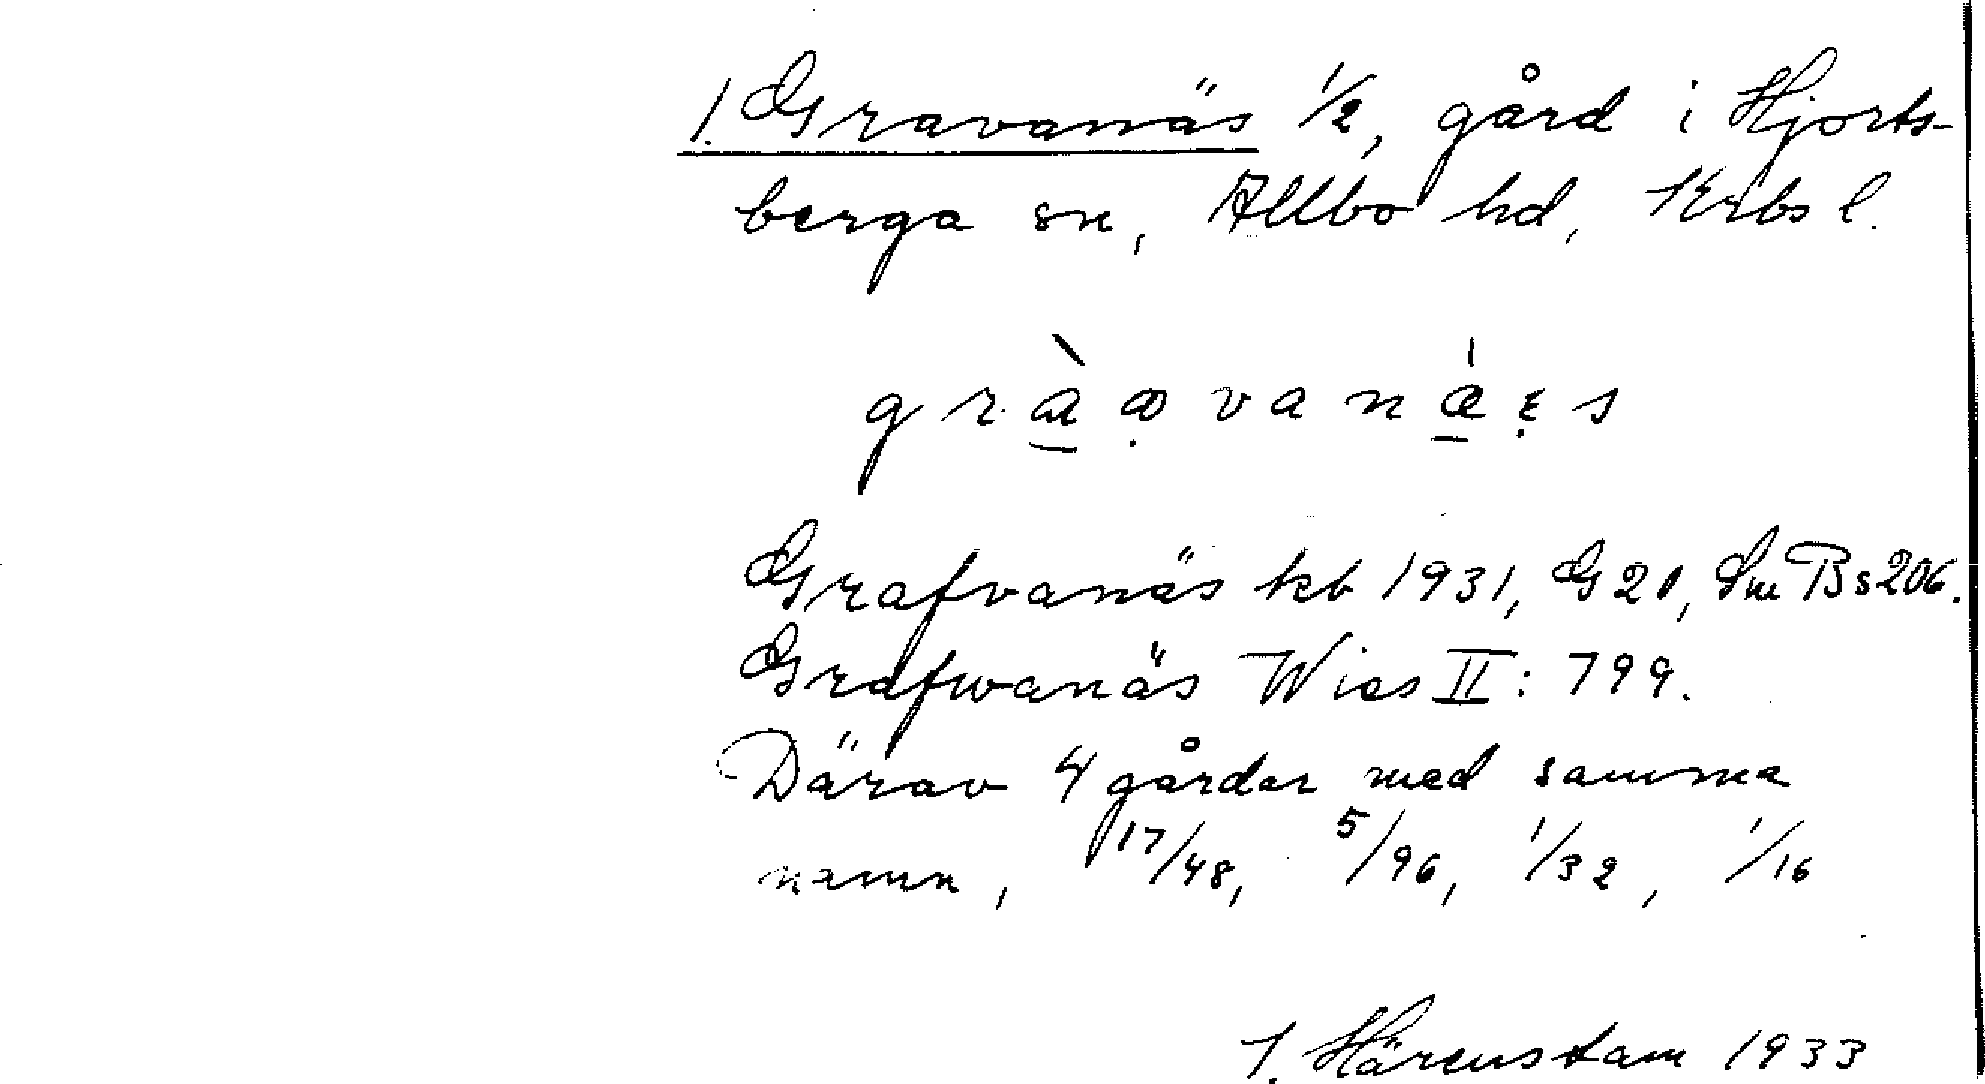 1. Gravanäs 1/2, gård i Hjorts-
berga sn, Allbo hd, Krbs l.
gràa̱ vanǽ̱ ɛs
Grafvanäs kb 1931, G 20, Sm Bs 206.
Grafwanäs Wies II: 799.
Därav 4 gårdar med samma
namn, 17/48, 5/96, 1/32, 1/16
J. Härenstam 1933